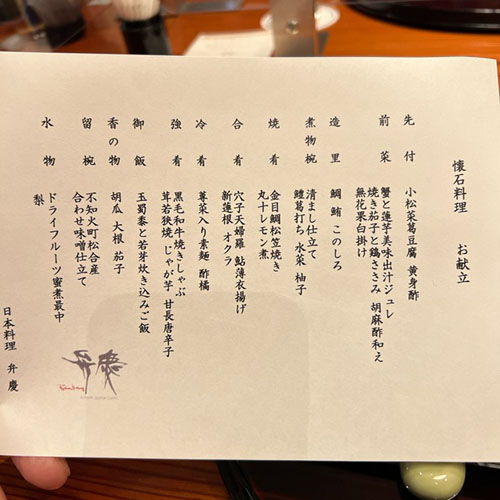 懐石料理　お献立
先付　小松菜葛豆腐 黄身酢
前菜　蟹と蓮芋美味出汁ジュレ
焼き茄子と鶏ささみ 胡麻酢和え
無花果白掛け
造里　鯛 鮪 このしろ
煮物椀　清まし仕立て
鱧葛打ち 水菜 柚子
焼肴　金目鯛松笠焼き
丸十レモン煮
合肴　穴子天婦羅 鮎薄衣揚げ
新蓮根 オクラ
冷肴　蓴菜入り素麺 酢橘
強肴　黒毛和牛焼きしゃぶ
茸若狭焼 じゃが芋 甘長唐辛子
御飯　玉蜀黍と若芽炊き込みご飯
香の物　胡瓜 大根 茄子
留椀　不知火町松合産
合わせ味噌仕立て
水物　ドライフルーツ蜜煮最中
梨
日本料理 弁慶
弁慶